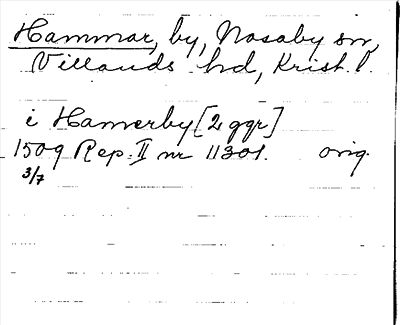 Hammar, by, Nosaby sn,
Villands hd, Krist. l.
i Hamerby [2 ggr]
1509 Rep. II nr 11301. orig.
3/7